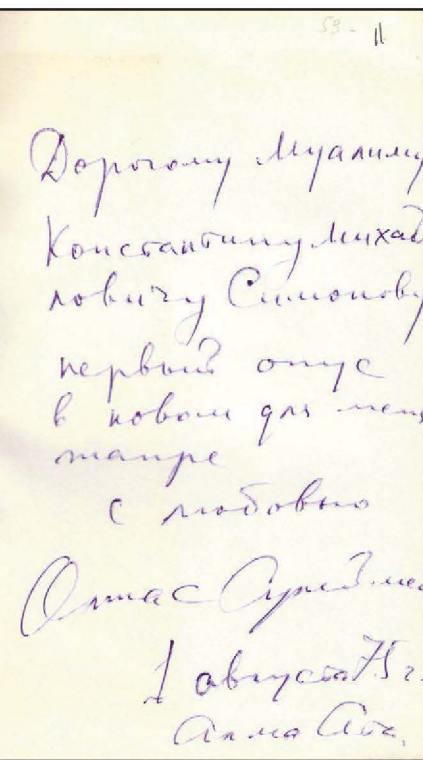 59- 11
Дорогому Муалиму
Константину Михай
ловичу Симонову
первый опус
в новом для меня
жанре
с любовью
Олжас Сулейме
1 августа 75 г.
Алма Ата.